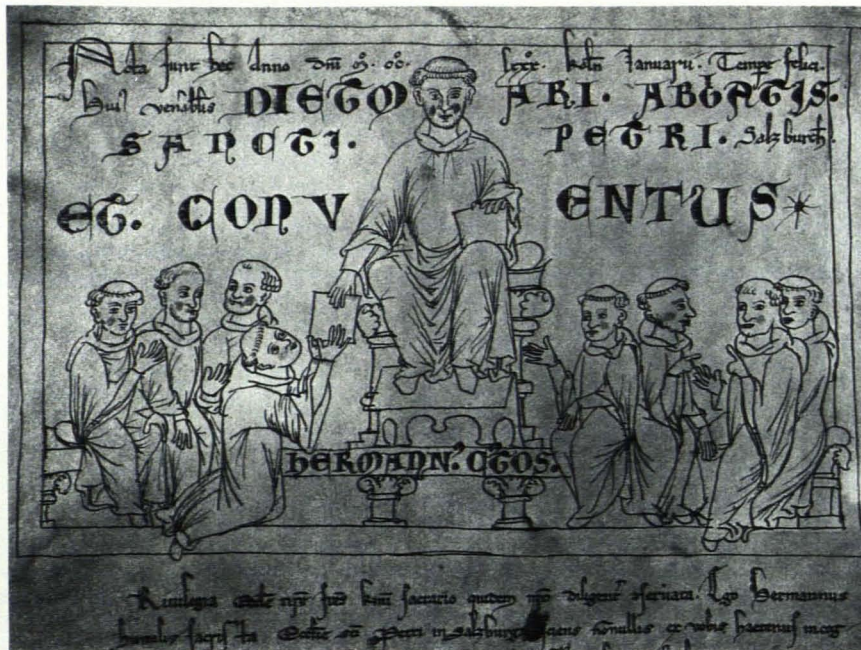 Nota sunt hec Anno dñi M. CC. lxxx. kaln̄ Januarii. Tempe felici
Hui⁹ venabilis DIETMARI. ABBATIS.
SANCTI. PETRI. Salzburch.
ET. CONVENTUS
HERMANN⁹. CTOS.
sacrario quidem diligent Ego Hermannus
humilis sacrista Ecclie sci Petri in Salzburg sciens nonnullis ex vobis hactenus incog